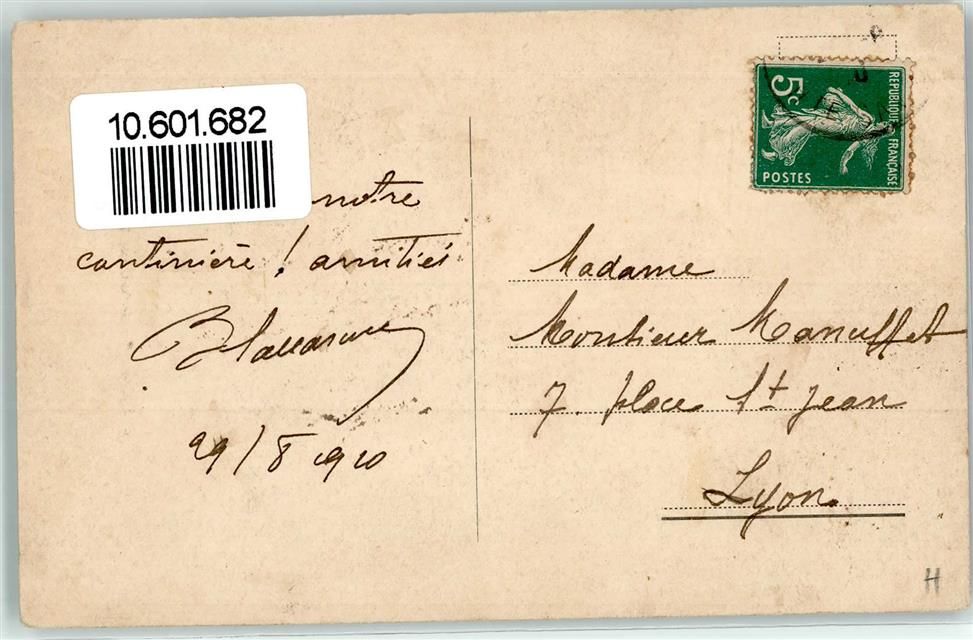 10.601.682
notre
cantinière ! amitiés
29/8 1910
5c
REPUBLIQUE FRANÇAISE
POSTES
Madame
Monsieur Manuffet
7. place St Jean
Lyon
H